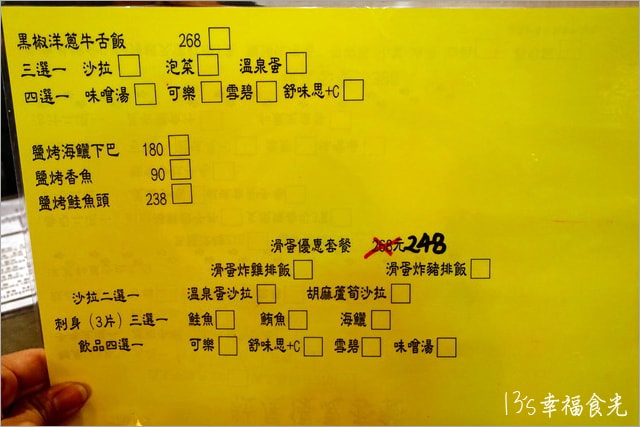 黑椒洋蔥牛舌飯 268 □
三選一 沙拉□ 泡菜□ 溫泉蛋□
四選一 味噌湯□ 可樂□ 雪碧□ 舒味思+C□
鹽烤海鱺下巴 180 □
鹽烤香魚 90 □
鹽烤鮭魚頭 238 □
滑蛋優惠套餐 268元 248
滑蛋炸雞排飯□ 滑蛋炸豬排飯□
沙拉二選一 溫泉蛋沙拉□ 胡麻蘆筍沙拉□
刺身（3片）三選一 鮭魚□ 鮪魚□ 海鱺□
飲品四選一 可樂□ 舒味思+C□ 雪碧□ 味噌湯□
13's幸福食光